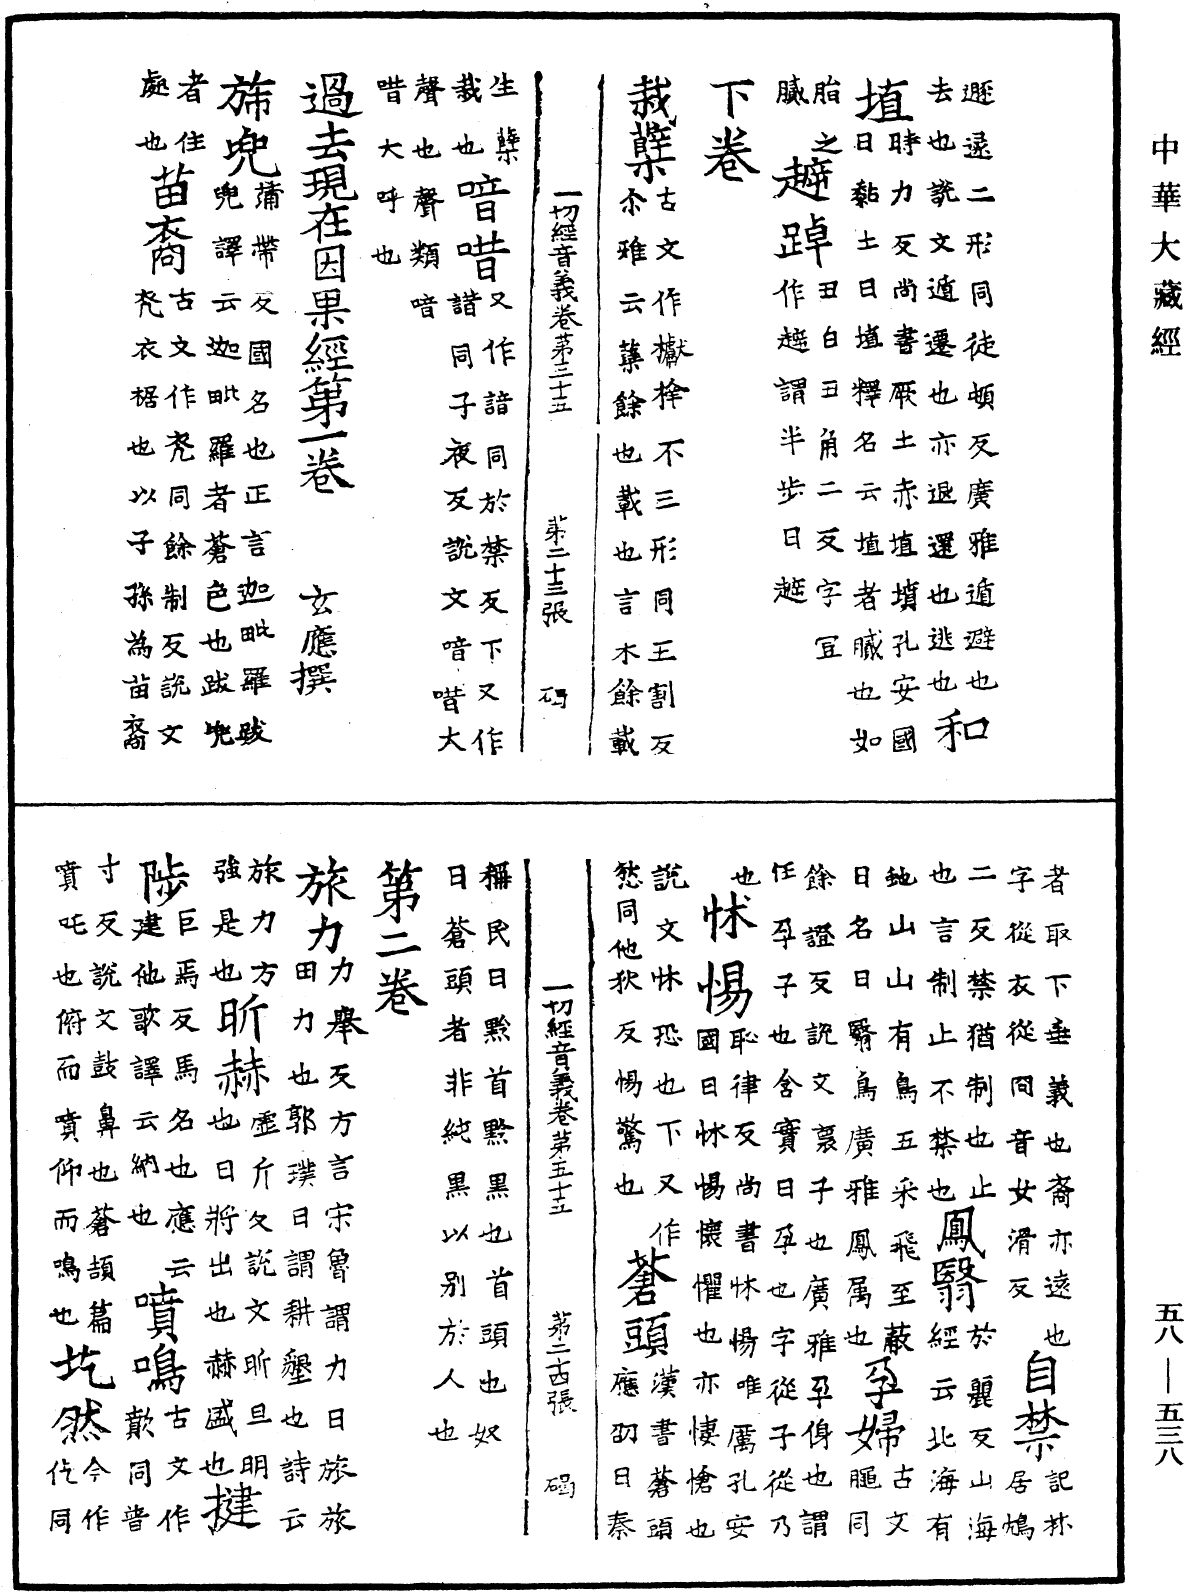 中華大藏經
遯遠二形同徒頓反廣雅遁避也
去也說文遁遷也亦退還也逃也和
埴時力反尚書厥土赤埴墳孔安國
曰黏土曰埴釋名云埴者膩也如
脂之踔丑白丑角二反字宜
膩作謂半步曰
下卷
栽蘖古文作㰆不三形同王割反
尒雅云蘖餘也載也言木餘載
一切經音義卷第五十五 第二十三張 碣
生蘖
栽也喑唶又作諳同於禁反下又作
諎同子夜反說文喑唶大
聲也聲類喑
唶大呼也
過去現在因果經第一卷 玄應撰
旆兜蒲帶反國名也正言迦毗羅跋
兜譯云迦毗羅者蒼色也跋兜
者住苗裔古文作同餘制反說文
處也衣裾也以子孫為苗裔
者取下垂義也裔亦遠也自禁記林
字從衣從冏音女滑反居鴆
二反禁猶制也止於麗反山海
也言制止不禁也鳳翳經云北海有
虵山山有鳥五采飛至蔽
日名曰翳鳥廣雅鳳属也孕婦古文
𦝫同
餘證反說文褢子也廣雅孕㑗也謂
任孕子也含實曰孕也字從子從乃
也怵惕恥律反尚書怵惕唯厲孔安
國曰怵惕懷懼也亦悽愴也
說文怵恐也下又作蒼頭漢書蒼頭
愁同他狄反惕驚也應劭曰秦
一切經音義卷第五十五 第二十四張 碣
稱民曰黔首黔黑也首頭也奴
曰蒼頭者非純黑以别於人也
第二卷
旅力力舉反方言宋魯謂力曰旅旅
田力也郭璞曰謂耕墾也詩云
旅力方昕赫虛斤反說文昕旦明
強是也也日將出也赫盛也揵
陟巨焉反馬名也應云噴鳴古文作
建他歌譯云納也歕同普
寸反說文鼓鼻也蒼頡篇圪然今作
噴吒也俯而噴仰而鳴也仡同
五八—五三八